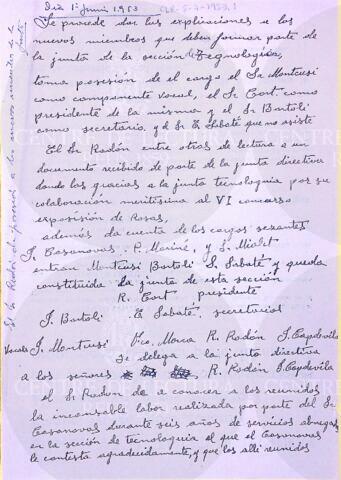 Dia 1º Junio 1953
Se procede dar las explicaciones a los
nuevos miembros que deben formar parte de
la junta de la sección de Tegnologia,
toma posesión de el cargo el Sr Montcusi
como componente vocal, el Sr. Cort como
presidente de la misma y el Sr Bartoli
como secretario, y el Sr E. Sabaté que no asiste
El Sr Rodón entre otros de lectura a un
documento recibido de parte de la junta directiva
dando las gracias a la junta tecnologuia por su
colaboración meritisima al VI concurso
exposición de Rosas,
además da cuenta de los cargos sezantes
J. Casanovas. P. Mariné, y S. Mialet
entran Montcusi Bartoli S. Sabaté y queda
constituida la junta de esta sección
R. Cort presidente
J. Bartoli E Sabaté secretarios
Vocals J. Montcusi Fco. Morera R. Rodón J. Capdevila
se delega a la junta directiva
a los señores R. Rodón J. Capdevila
el Sr Rodon da a conocer a los reunidos
la incansable labor realizada por parte del Sr
Casanovas durante seis años de servicios abnegados
en la sección de tecnologuia el que el Casanovas
le contesta agradecidamente, y que los alli reunidos